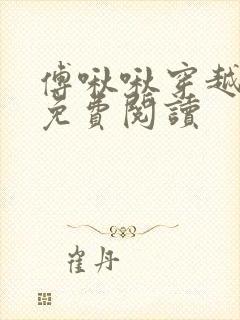 傅啾啾穿越
免費閱讀
崔丹